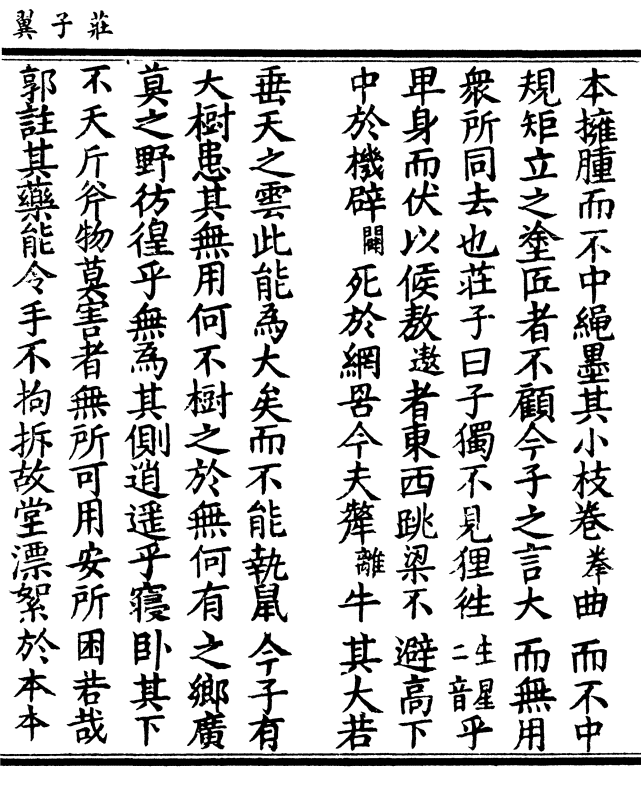 莊子翼
本擁腫而不中繩墨其小枝卷拳曲而不中
規矩立之塗匠者不顧今子之言大而無用
衆所同去也莊子曰子獨不見狸狌生星二音乎
卑身而伏以候敖遨者東西跳梁不避高下
中於機辟闢死於網罟今夫犛離牛其大若
垂天之雲此能為大矣而不能執鼠今子有
大樹患其無用何不樹之於無何有之鄉廣
莫之野彷徨乎無為其側逍遥乎寢卧其下
不夭斤斧物莫害者無所可用安所困苦哉
郭註其藥能令手不拘拆故堂漂絮於本本